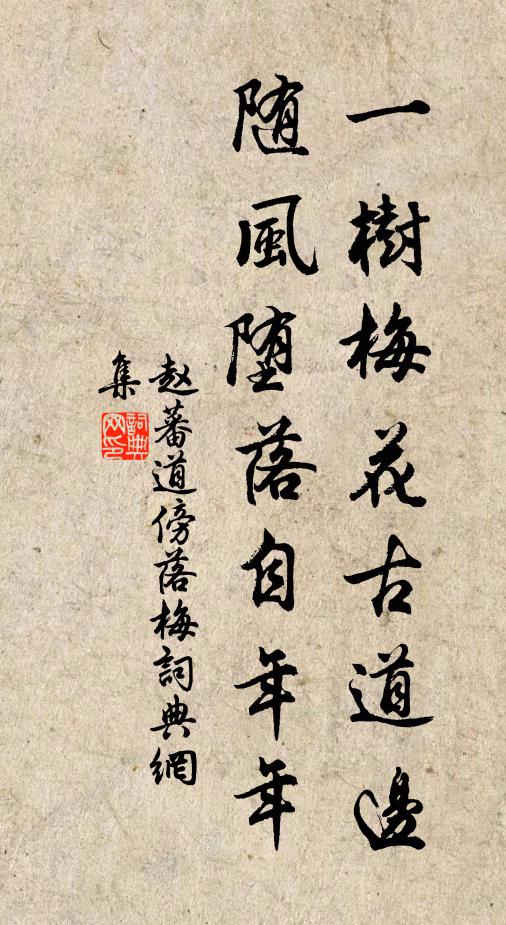 一樹梅花古道邊
随風堕落自年年
赵蕃道傍落梅詞典網
集
詞典网印